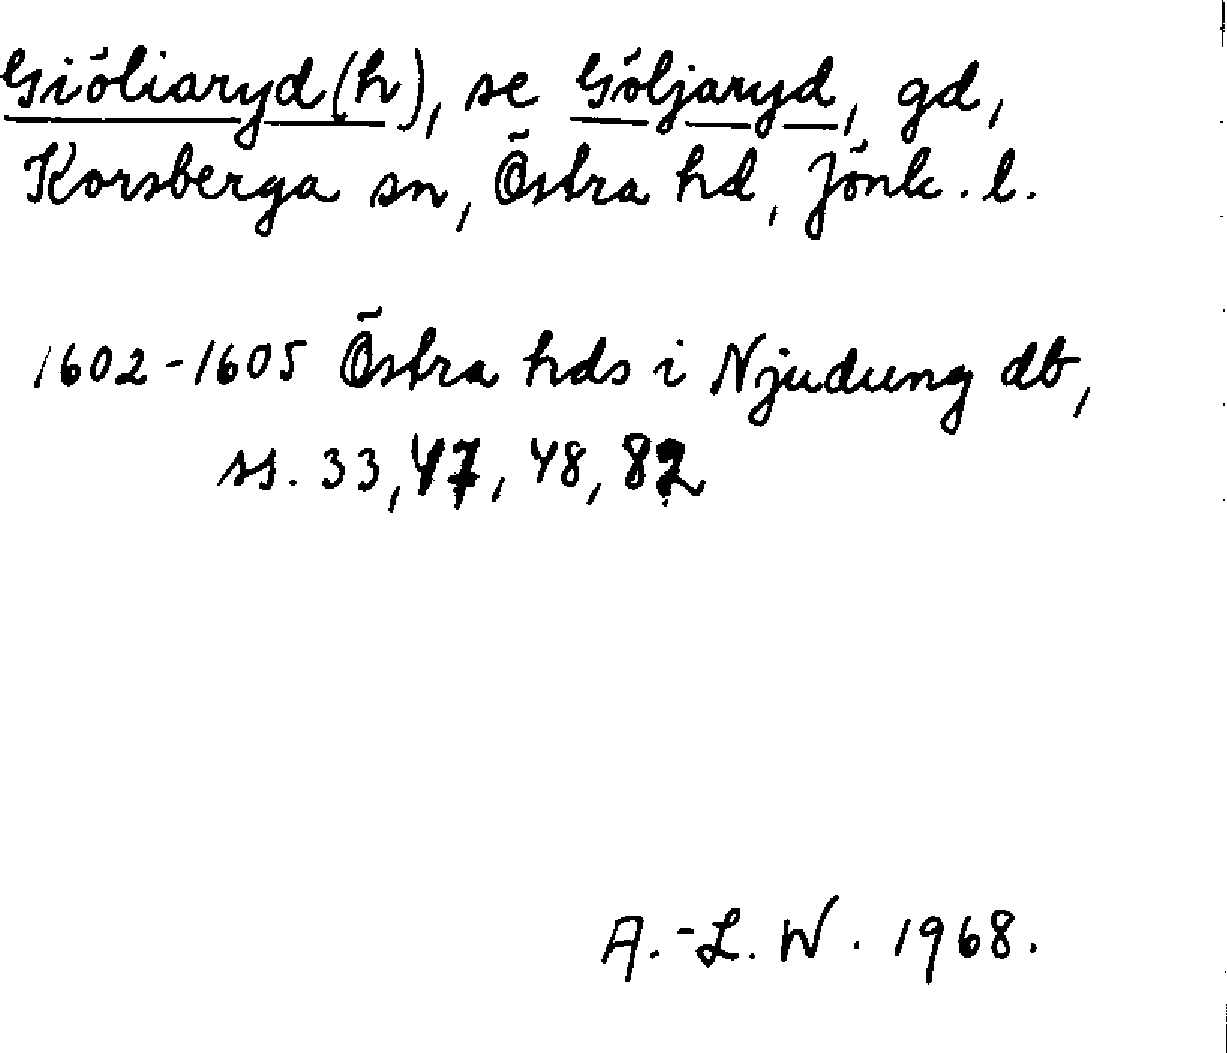 Giöliaryd(h), se Göljaryd, gd,
Korsberga sn, Östra hd, Jönk. l.
1602-1605 Östra hds i Njudung db,
ss. 33, 47, 48, 82
A.-L. W. 1968.